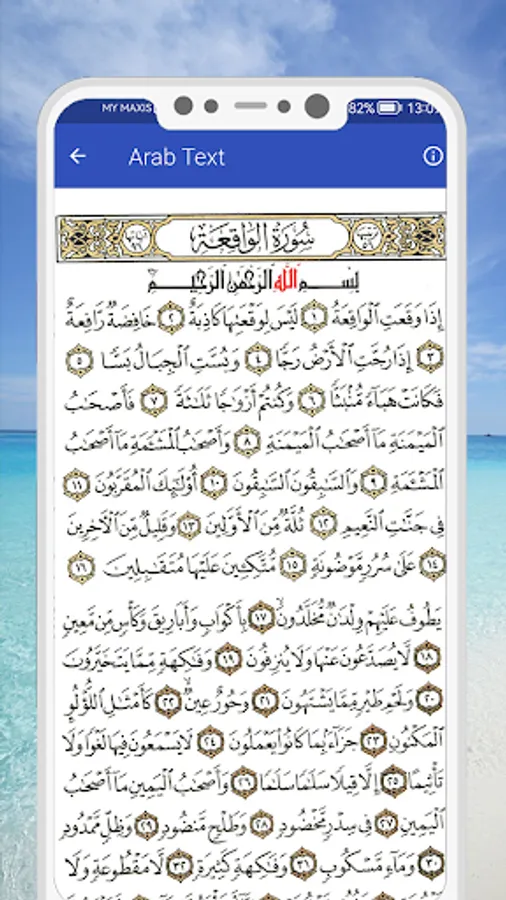 MY MAXIS 82% 13:0
Arab Text
سُورَةُ الوَاقِعَة
بِسْمِ ٱللَّهِ ٱلرَّحْمَٰنِ ٱلرَّحِيمِ
إِذَا وَقَعَتِ ٱلْوَاقِعَةُ ١ لَيْسَ لِوَقْعَتِهَا كَاذِبَةٌ ٢ خَافِضَةٌ رَّافِعَةٌ
٣ إِذَا رُجَّتِ ٱلْأَرْضُ رَجًّا ٤ وَبُسَّتِ ٱلْجِبَالُ بَسًّا ٥
فَكَانَتْ هَبَآءً مُّنۢبَثًّا ٦ وَكُنتُمْ أَزْوَٰجًا ثَلَٰثَةً ٧ فَأَصْحَٰبُ
ٱلْمَيْمَنَةِ مَآ أَصْحَٰبُ ٱلْمَيْمَنَةِ ٨ وَأَصْحَٰبُ ٱلْمَشْـَٔمَةِ مَآ أَصْحَٰبُ
ٱلْمَشْـَٔمَةِ ٩ وَٱلسَّٰبِقُونَ ٱلسَّٰبِقُونَ ١٠ أُو۟لَٰٓئِكَ ٱلْمُقَرَّبُونَ ١١
فِى جَنَّٰتِ ٱلنَّعِيمِ ١٢ ثُلَّةٌ مِّنَ ٱلْأَوَّلِينَ ١٣ وَقَلِيلٌ مِّنَ ٱلْءَاخِرِينَ
١٤ عَلَىٰ سُرُرٍ مَّوْضُونَةٍ ١٥ مُّتَّكِـِٔينَ عَلَيْهَا مُتَقَٰبِلِينَ ١٦
يَطُوفُ عَلَيْهِمْ وِلْدَٰنٌ مُّخَلَّدُونَ ١٧ بِأَكْوَابٍ وَأَبَارِيقَ وَكَأْسٍ مِّن مَّعِينٍ
١٨ لَّا يُصَدَّعُونَ عَنْهَا وَلَا يُنزِفُونَ ١٩ وَفَٰكِهَةٍ مِّمَّا يَتَخَيَّرُونَ
٢٠ وَلَحْمِ طَيْرٍ مِّمَّا يَشْتَهُونَ ٢١ وَحُورٌ عِينٌ ٢٢ كَأَمْثَٰلِ ٱللُّؤْلُؤِ
ٱلْمَكْنُونِ ٢٣ جَزَآءًۢ بِمَا كَانُوا۟ يَعْمَلُونَ ٢٤ لَا يَسْمَعُونَ فِيهَا لَغْوًا وَلَا
تَأْثِيمًا ٢٥ إِلَّا قِيلًا سَلَٰمًا سَلَٰمًا ٢٦ وَأَصْحَٰبُ ٱلْيَمِينِ مَآ أَصْحَٰبُ
ٱلْيَمِينِ ٢٧ فِى سِدْرٍ مَّخْضُودٍ ٢٨ وَطَلْحٍ مَّنضُودٍ ٢٩ وَظِلٍّ مَّمْدُودٍ
٣٠ وَمَآءٍ مَّسْكُوبٍ ٣١ وَفَٰكِهَةٍ كَثِيرَةٍ ٣٢ لَّا مَقْطُوعَةٍ وَلَا